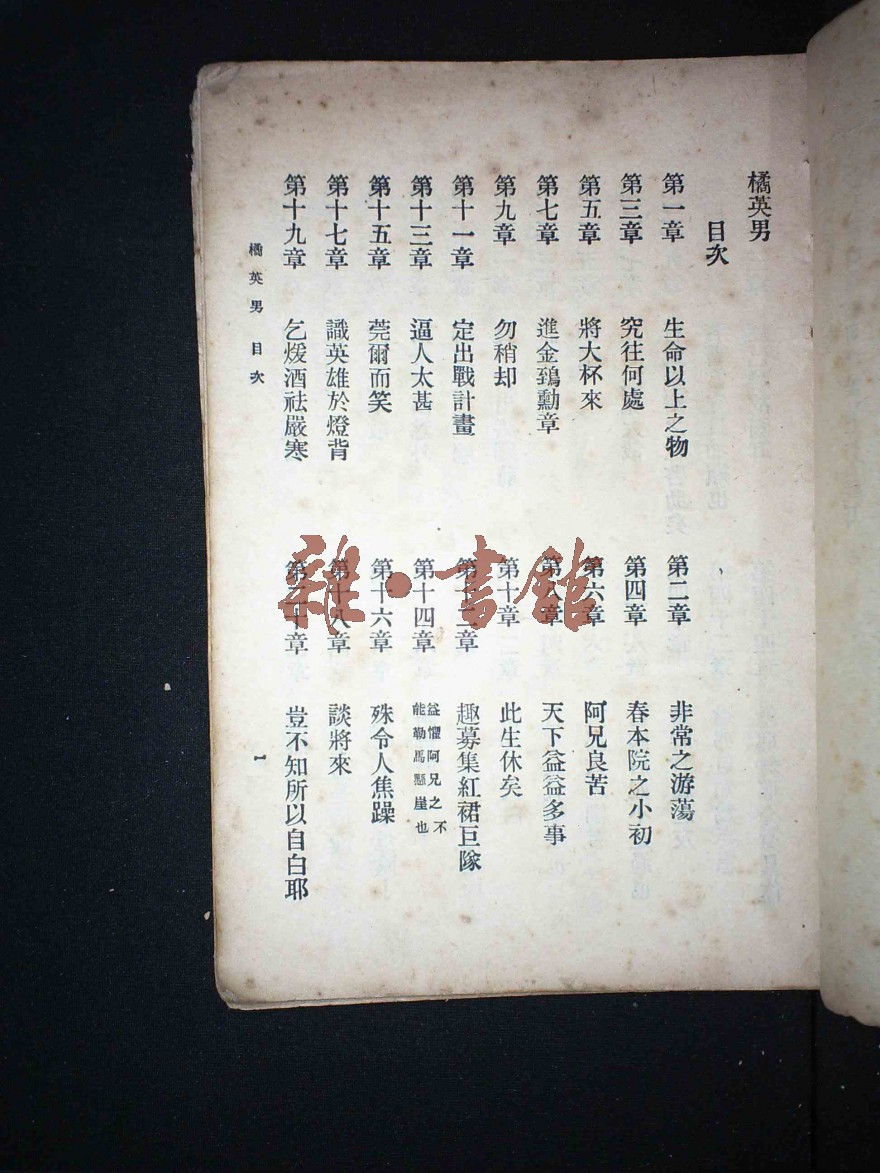 橘英男
目次
第一章 生命以上之物 第二章 非常之游蕩
第三章 究往何處 第四章 春本院之小初
第五章 將大杯來 第六章 阿兄良苦
第七章 進金鵄勳章 第八章 天下益益多事
第九章 勿稍却 第十章 此生休矣
第十一章 定出戰計畫 第十二章 趣募集紅裙巨隊
第十三章 逼人太甚 第十四章 益懼阿兄之不能勒馬懸崖也
第十五章 莞爾而笑 第十六章 殊令人焦躁
第十七章 識英雄於燈背 第十八章 談將來
第十九章 乞煖酒祛嚴寒 第二十章 豈不知所以自白耶
橘英男 目次 一
雜·書館